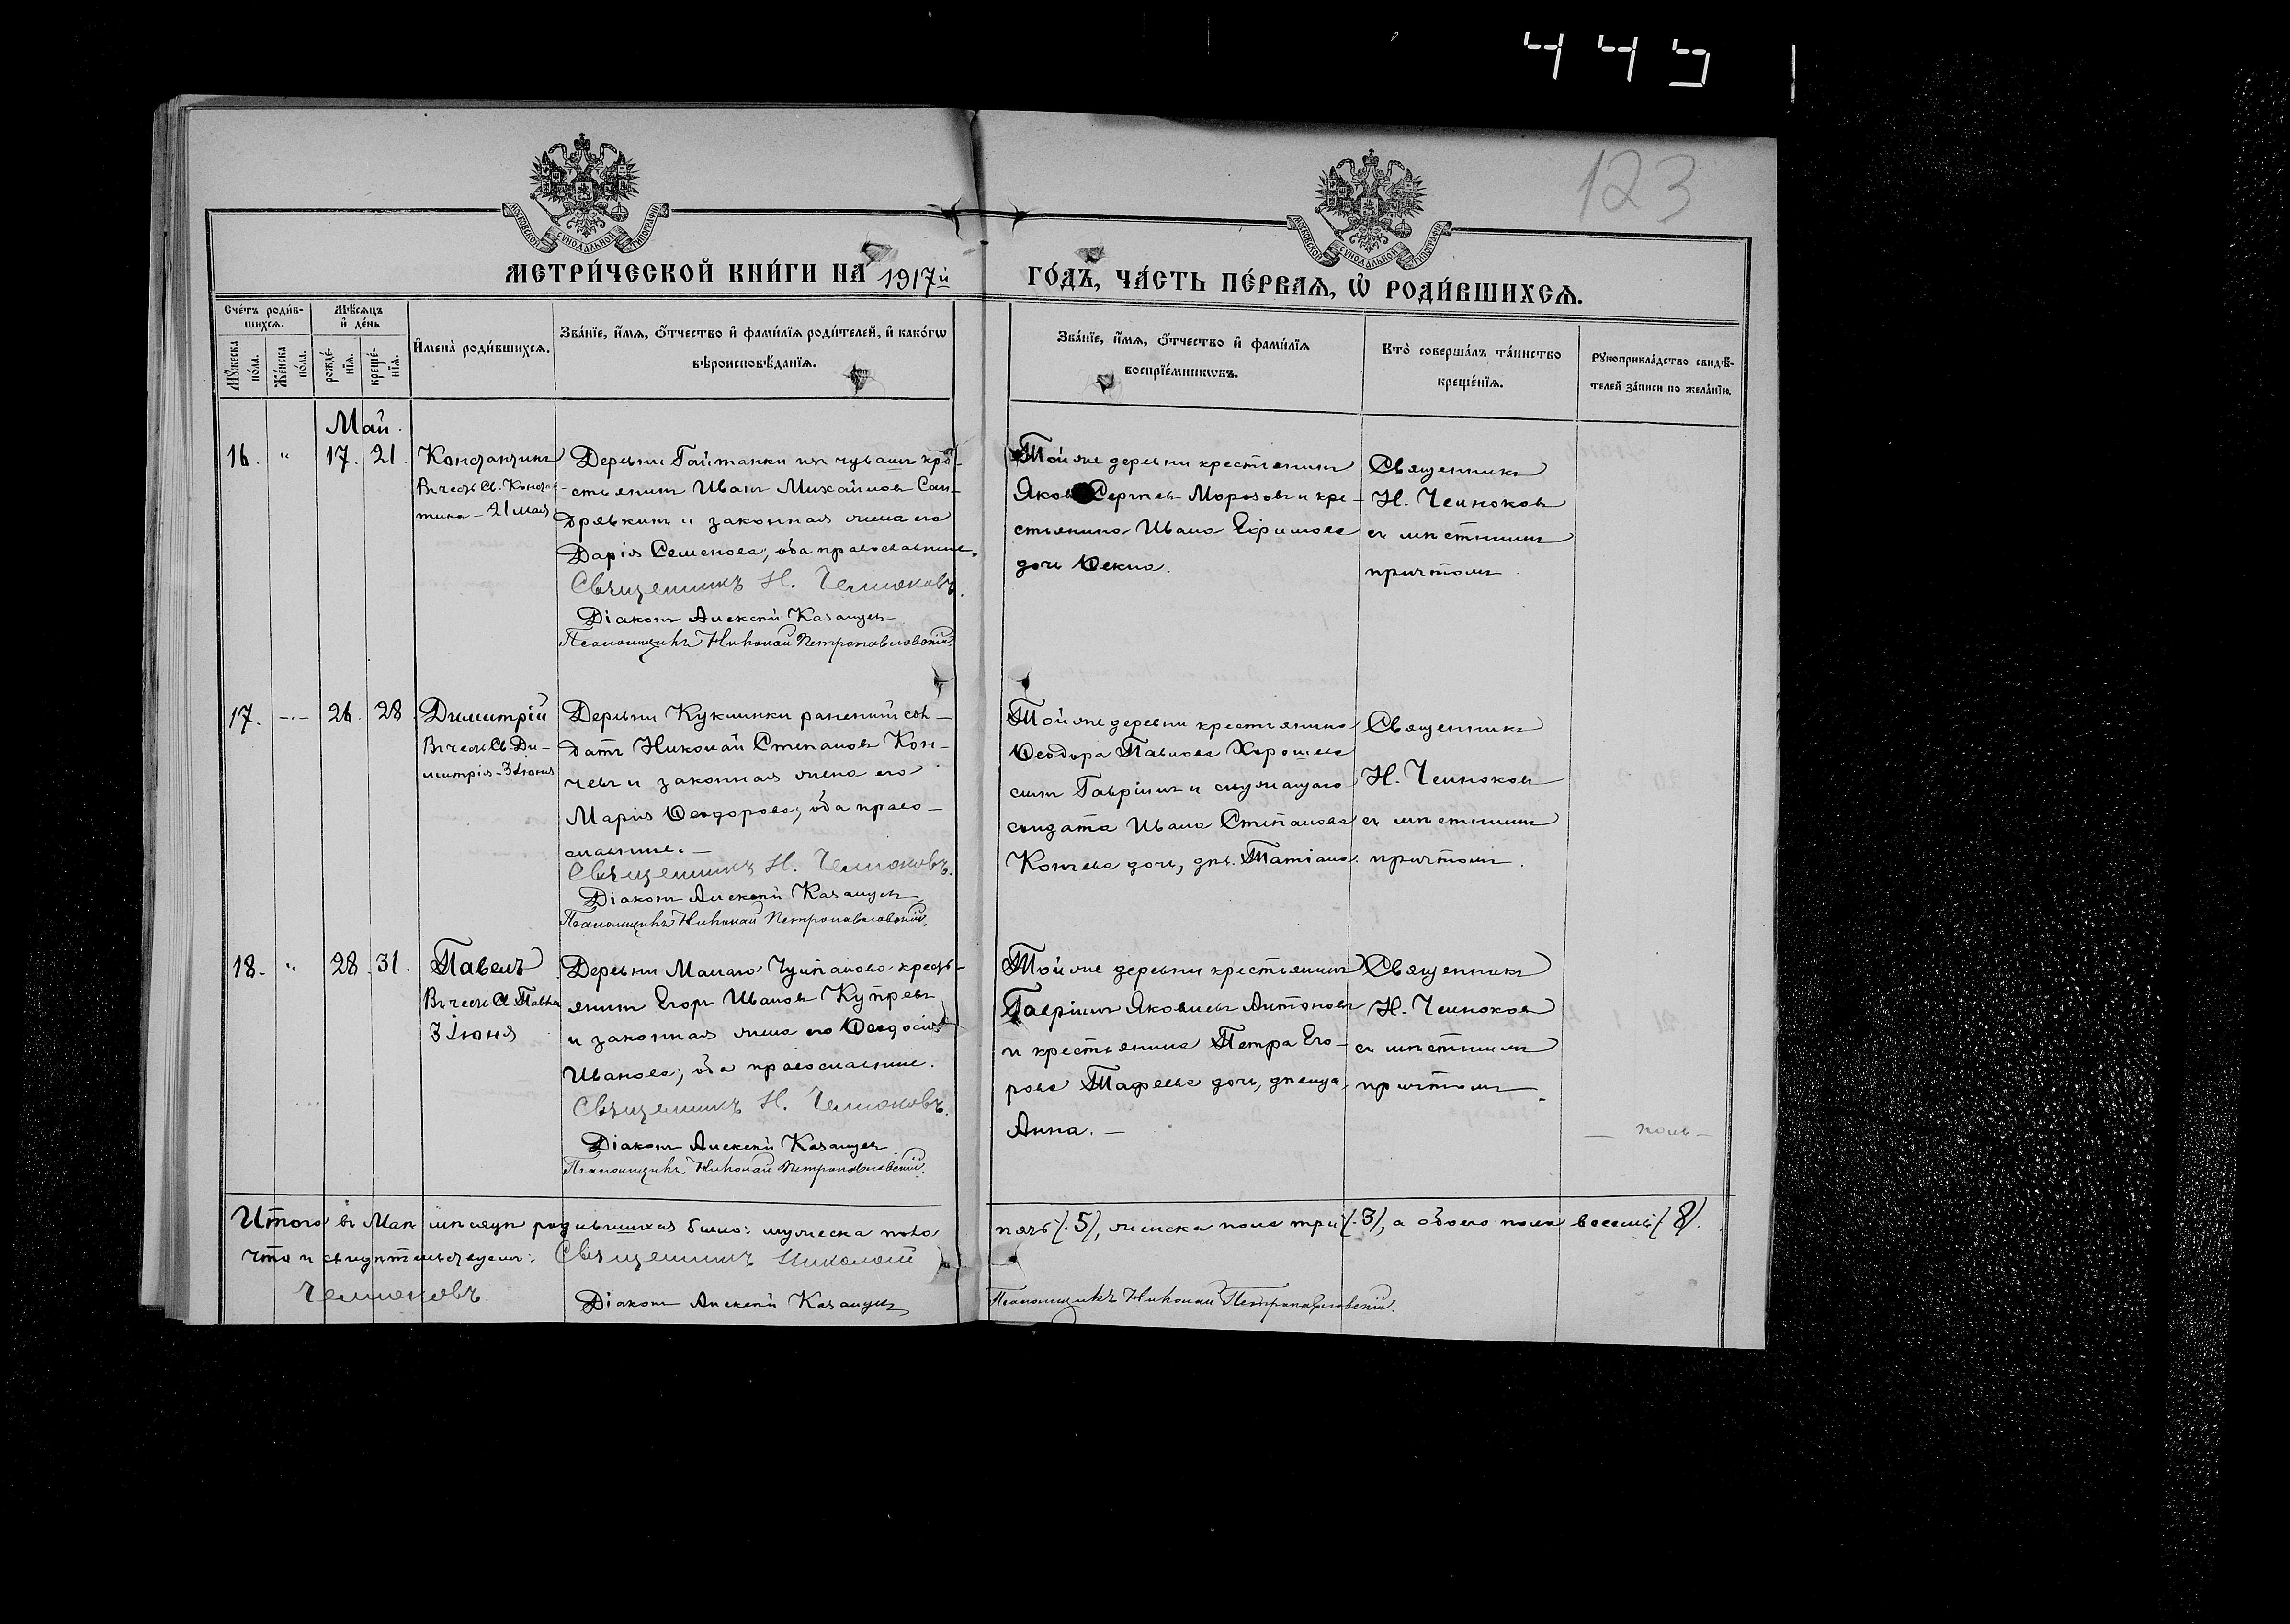 443
123
МОСКОВСКОЙ СѴНОДАЛЬНОЙ ТИПОГРАФІИ
МОСКОВСКОЙ СѴНОДАЛЬНОЙ ТИПОГРАФІИ
МЕТРИ́ЧЕСКОЙ КНИ́ГИ НА 1917й
ГО́ДЪ, ЧА́СТЬ ПЕ́РВАѦ, Ѡ҆ РОДИ́ВШИХСѦ.
Сче́тъ роди́в-
шихсѧ.
Мѣ́сѧцъ
и҆ де́нь
Мꙋ́жеска
по́ла.
Же́нска
по́ла.
рожде́-
нїѧ.
креще́-
нїѧ.
И҆мена̀ роди́вшихсѧ.
Зва́нїе, и҆́мѧ, ѻ҆́тчество и҆ фами́лїѧ роди́телей, и҆ како́гѡ
вѣроисповѣ́данїѧ.
Зва́нїе, и҆́мѧ, ѻ҆́тчество и҆ фами́лїѧ
воспрїе́мникѡвъ.
Кто̀ соверша́лъ та́инство
креще́нїѧ.
Рꙋкоприкла́дство свидѣ́-
телей за́писи по жела́нїю.
Май.
16. " 17. 21. Константинъ
Въ честь Св. Констан-
тина – 21 мая
Деревни Гайтанки изъ чувашъ кре-
стьянинъ Иванъ Михайловъ Сан-
дрявкинъ и законная жена его
Дарія Семенова; оба православные.
Священникъ Н. Чемоковъ.
Діаконъ Алексѣй Казанцевъ
Псаломщикъ Николай Петропавловскій.
Той же деревни крестьянинъ
Яковъ Сергѣевъ Морозовъ и кре-
стьянина Ивана Ефимова
дочь Ѳекла.
Священникъ
Н. Чемоковъ
съ мѣстнымъ
причтомъ.
17. -"- 26. 28. Димитрій
Въ честь Св. Ди-
митрія – 3 Іюня
Деревни Куклинки раненый сол-
датъ Николай Степановъ Кон-
чевъ и законная жена его
Марія Ѳеодорова; оба право-
славные. –
Священникъ Н. Чемоковъ.
Діаконъ Алексѣй Казанцевъ
Псаломщикъ Николай Петропавловскій.
Той же деревни крестьянина
Ѳеодора Павлова Хорошева
сынъ Гавріилъ и служащаго
солдата Ивана Степанова
Кончева дочь, дѣв. Татіана.
Священникъ
Н. Чемоковъ
съ мѣстнымъ
причтомъ.
18. " 28. 31. Павелъ
Въ честь Св. Павла
3 Іюня
Деревни Малаго Чупанова кресть-
янинъ Егоръ Ивановъ Купревъ
и законная жена его Ѳеодосія
Иванова; оба православные.
Священникъ Н. Чемоковъ.
Діаконъ Алексѣй Казанцевъ
Псаломщикъ Николай Петропавловскій.
Той же деревни крестьянинъ
Гавріилъ Яковлевъ Антоновъ
и крестьянина Петра Его-
рова дочь, дѣвица,
Анна. –
Священникъ
Н. Чемоковъ
съ мѣстнымъ
причтомъ.
Итого въ Маѣ мѣсяцѣ родившихся было: мужеска пола
пять /.5/, женска пола три /.3/, а обоего пола восемь /.8/.
что и свидѣтельствуемъ: Священникъ Николай
Чемоковъ.
Діаконъ Алексѣй Казанцевъ
Псаломщикъ Николай Петропавловскій.